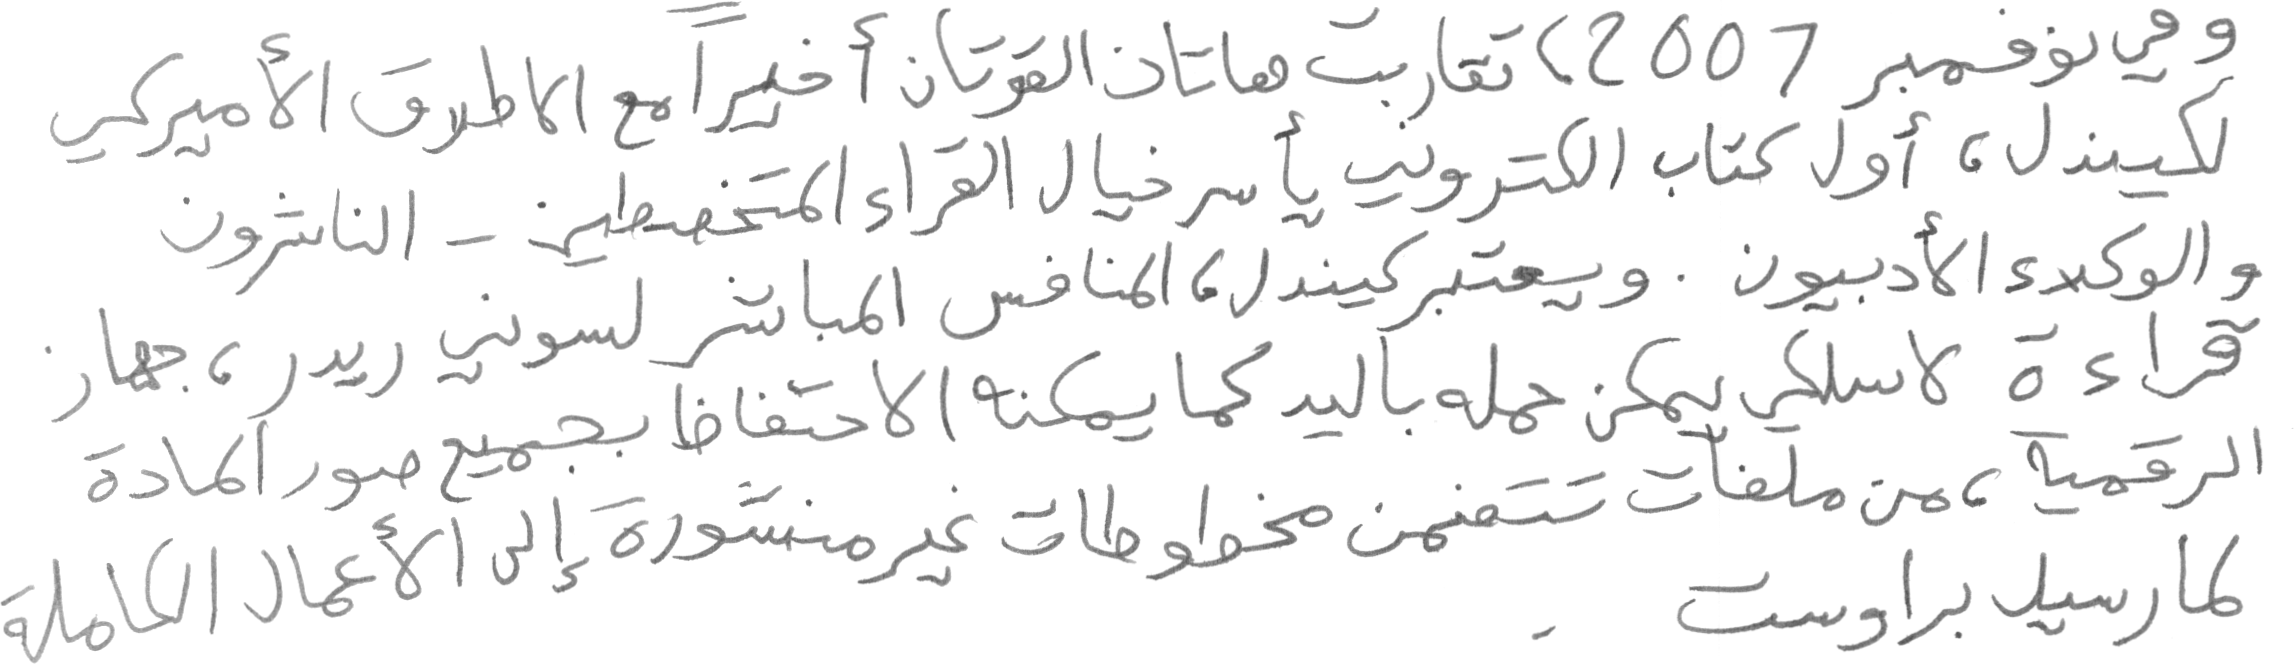 وفي نوفمبر 2007، تقاربت هاتان القوتان أخيراً مع الاطلاق الأميركي
لكيندل، أول كتاب الكتروني يأسر خيال القراء المتخصطين - الناشرون
والوكلاء الأدبيون . ويعتبر كيندل، المنافس المباشر لسوني ريدر، جهاز
قراءة لاسلكي يمكن حمله باليد كما يمكنه الاحتفاظ بجميع صور المادة
الرقمية، من ملفات تتضمن مخطوطات غير منشورة إلى الأعمال الكاملة
لمارسيل براوست .